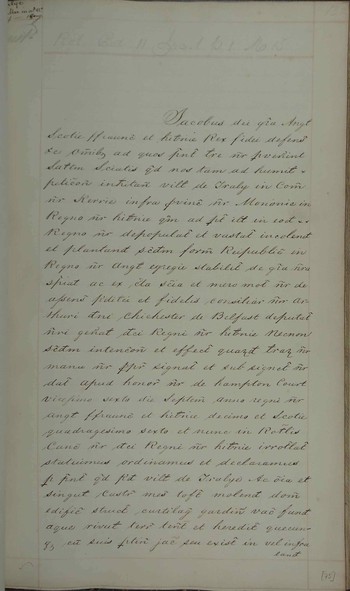 Jacobus dei gra Angt
Scotie ffrancie et hibnie Rex fidei defens
&c Omibz ad quos psent tre nr pvenint
Saltem Sciatis qd nos tam ad humit
peticon inhitan vilt de Traly in Com
nr Kerrie infra pvinc nr Mononie in
Regno nr hibnie qm ad pt ilt in eod
Regno nr depopulat et vastat incolend
et plantand scdm form Reipublic in
Regno nr Angt egregie stabilit de gra nra
speat ac ex cta scia et mero mot nr de
assens pditti et fidelis consiliar nr Ar
thuri dni Chichester de Belfast deputat
nri genat dci Regni nr hibnie Necnon
scdm intencon et effect quazd traz nr
manu nr ppr signat et sub signet nr
dat apud honor nr de hampton Court
vicesimo sexto die Septem anno regni nr
Angt ffrancie et hibnie decimo et Scotie
quadragesimo sexto et nunc in Rottis
Canc nr dci Regni nr hibnie irrottat
statuimus ordinamus et declaramus
p psent qd pd vilt de Tralye Ac oia et
singut Castr mes toft molend dom
edific struct curtilag gardin vac fund
aque rivut terr tent et heredit quecun
qz cu suis ptin jac seu exist in vel infra
(75)